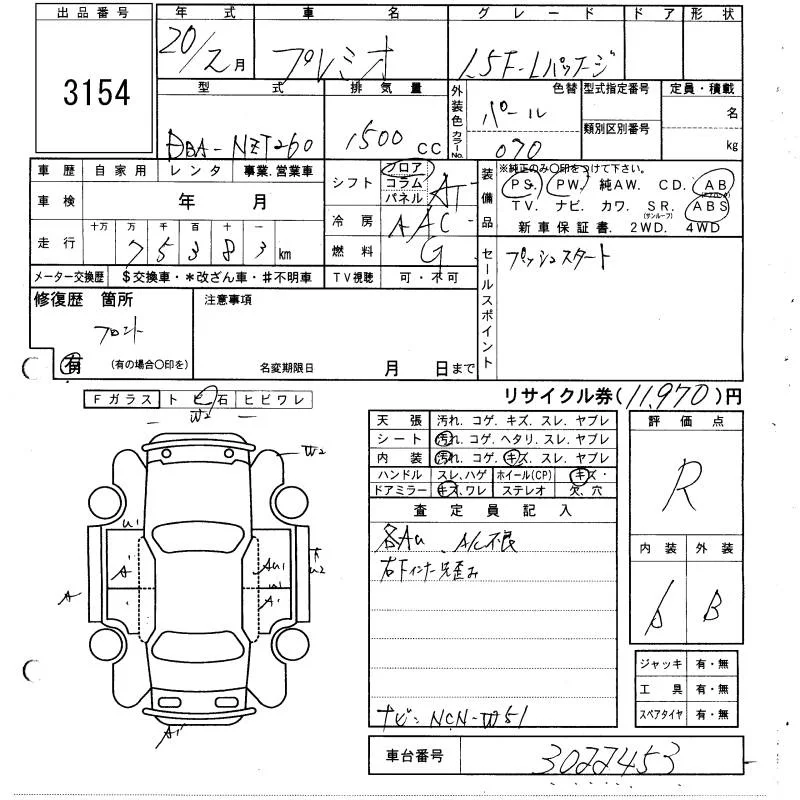 出品番号 年式 車名 グレード ドア 形状
3154 20/2月 プレミオ 1.5F-Lパッケージ
型式 排気量 外装色 カラーNo. 色替 型式指定番号 定員・積載
DBA-NZT260 1500 CC パール 名
070 類別区別番号 kg
車歴 自家用 レンタ 事業.営業車
車検 年 月
走行 十万 万 千 百 十 一
7 5 3 8 3 km
メーター交換歴 $交換車・*改ざん車・#不明車
シフト フロア コラム パネル AT
冷房 AAC
燃料 G
TV視聴 可・不可
装備品 ※純正のみ○印をつけて下さい。
PS. PW. 純AW. CD. AB (エアバッグ)
TV. ナビ. カワ. SR. (サンルーフ) ABS
新車保証書. 2WD. 4WD
セールスポイント プッシュスタート
修復歴 箇所 注意事項
フロント
有 (有の場合○印を) 名変期限日 月 日まで
リサイクル券(11,970)円
Fガラス トビ石 ヒビワレ
W2
W2
U1
A1
A
AU1
U1
A1
U2
A1
天張 汚れ. コゲ. キズ. スレ. ヤブレ
シート 汚れ. コゲ. ヘタリ. スレ. ヤブレ
内装 汚れ. コゲ. キズ. スレ. ヤブレ
ハンドル スレ.ハゲ ホイール(CP) キズ・
ドアミラー キズ.ワレ ステレオ 欠. 穴
査定員記入
各AU A/C不良
右Fインナー先歪み
ナビ: NCN-W51
評価点
R
内装 外装
B
ジャッキ 有・無
工具 有・無
スペアタイヤ 有・無
車台番号 3022453